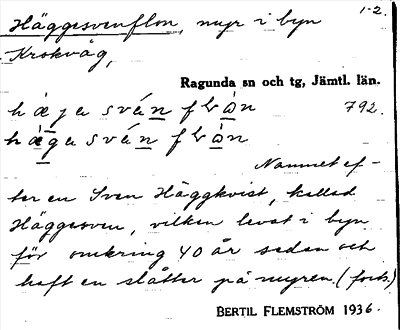 Häggesvenflon, myr i byn 1-2.
Krokvåg,
Ragunda sn och tg, Jämtl. län.
hæja sván flon 792.
hæga sván flon
Namnet ef-
ter en Sven Häggkvist, kallad
Häggesven, vilken levat i byn
för omkring 40 år sedan och
haft en slåtter på myren. (forts.)
BERTIL FLEMSTRÖM 1936.